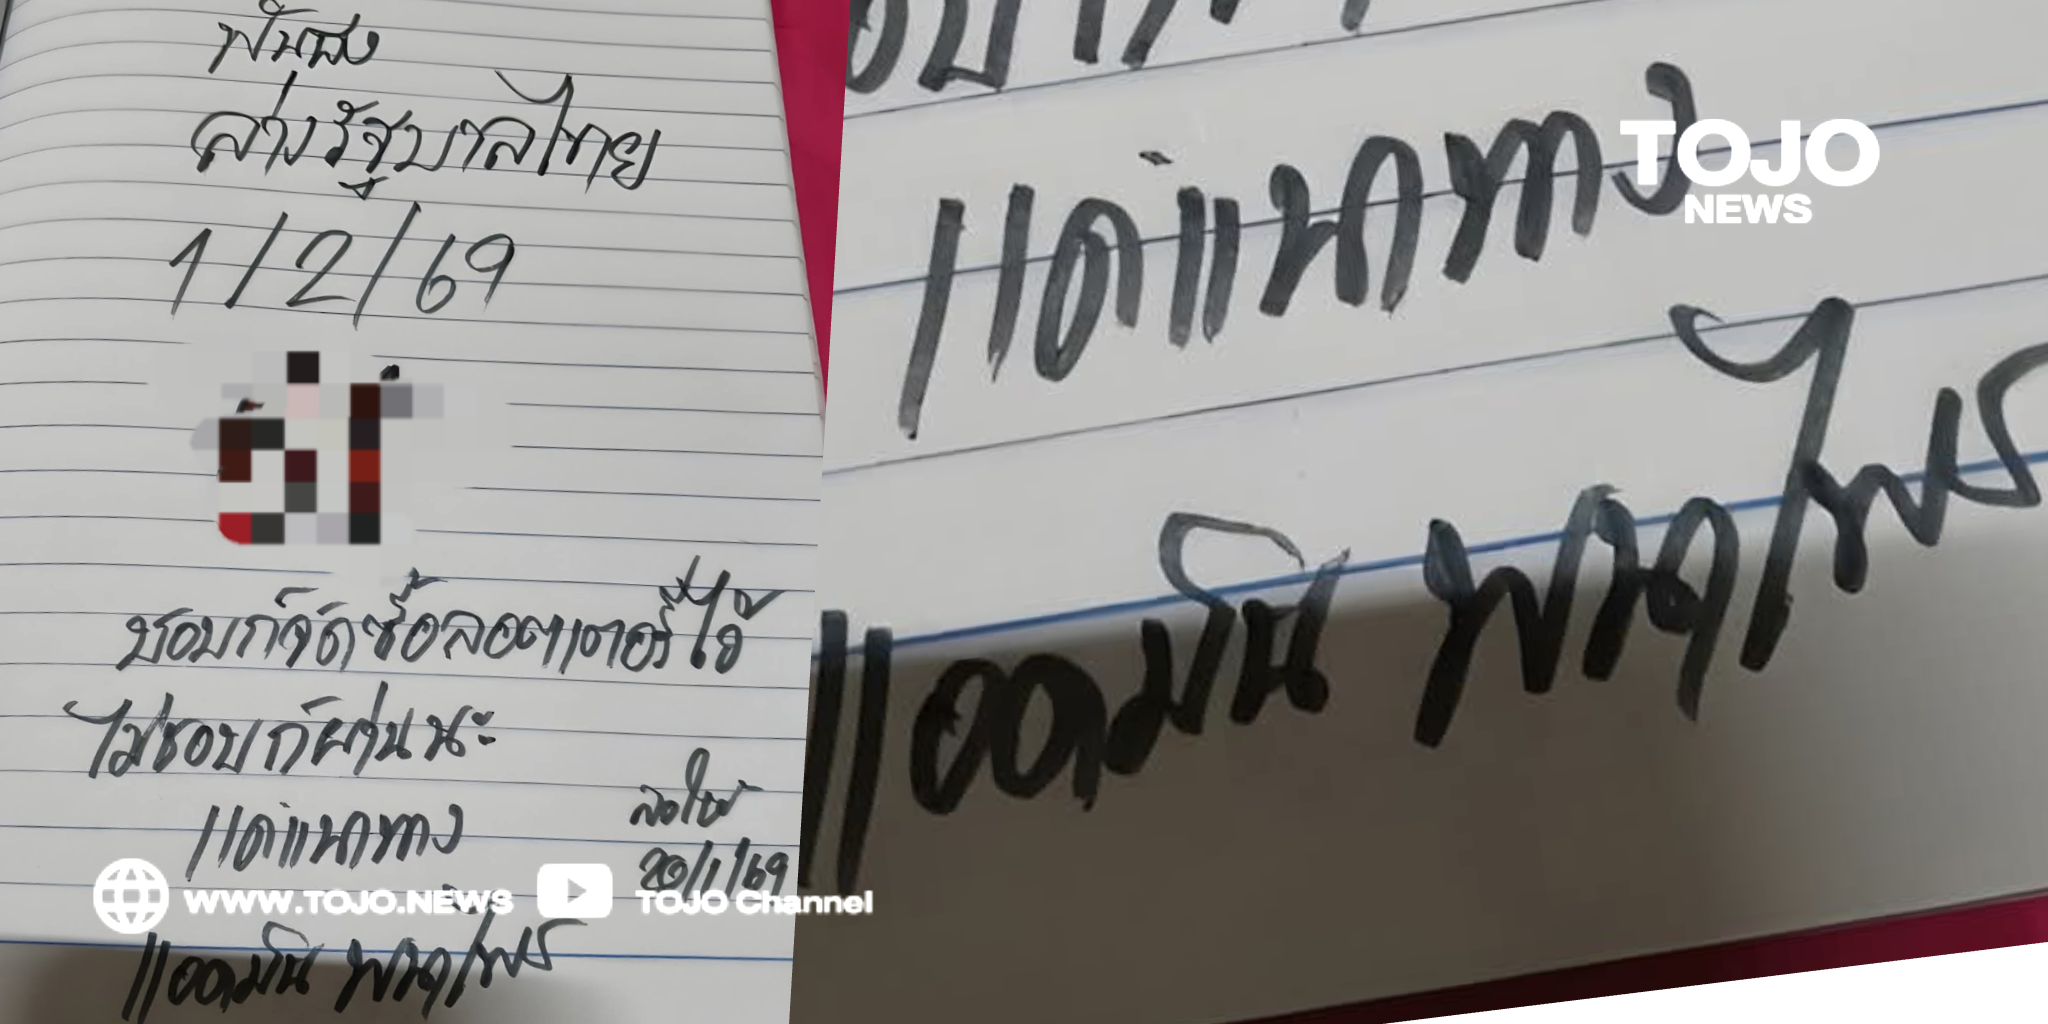 ฟันธง
ล่างรัฐบาลไทย
1/2/69
ชอบก็จัดซื้อลอตเตอรี่ไว้
ไม่ชอบก็ผ่านนะ
แด่แนวทาง
20/1/69
แอดมิน พาดไพร
WWW.TOJO.NEWS
TOJO Channel
แด่แนวทาง
แอดมิน พาดไพร
TOJO
NEWS